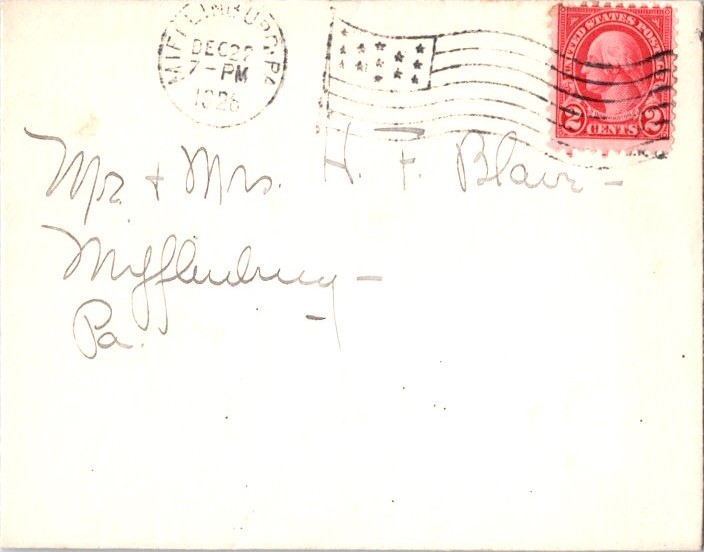 MIFFLINBURG, PA
DEC 22
7-PM
1926
UNITED STATES POSTAGE
2 CENTS 2
Mr. + Mrs. H. F. Blair -
Mifflinburg -
Pa.